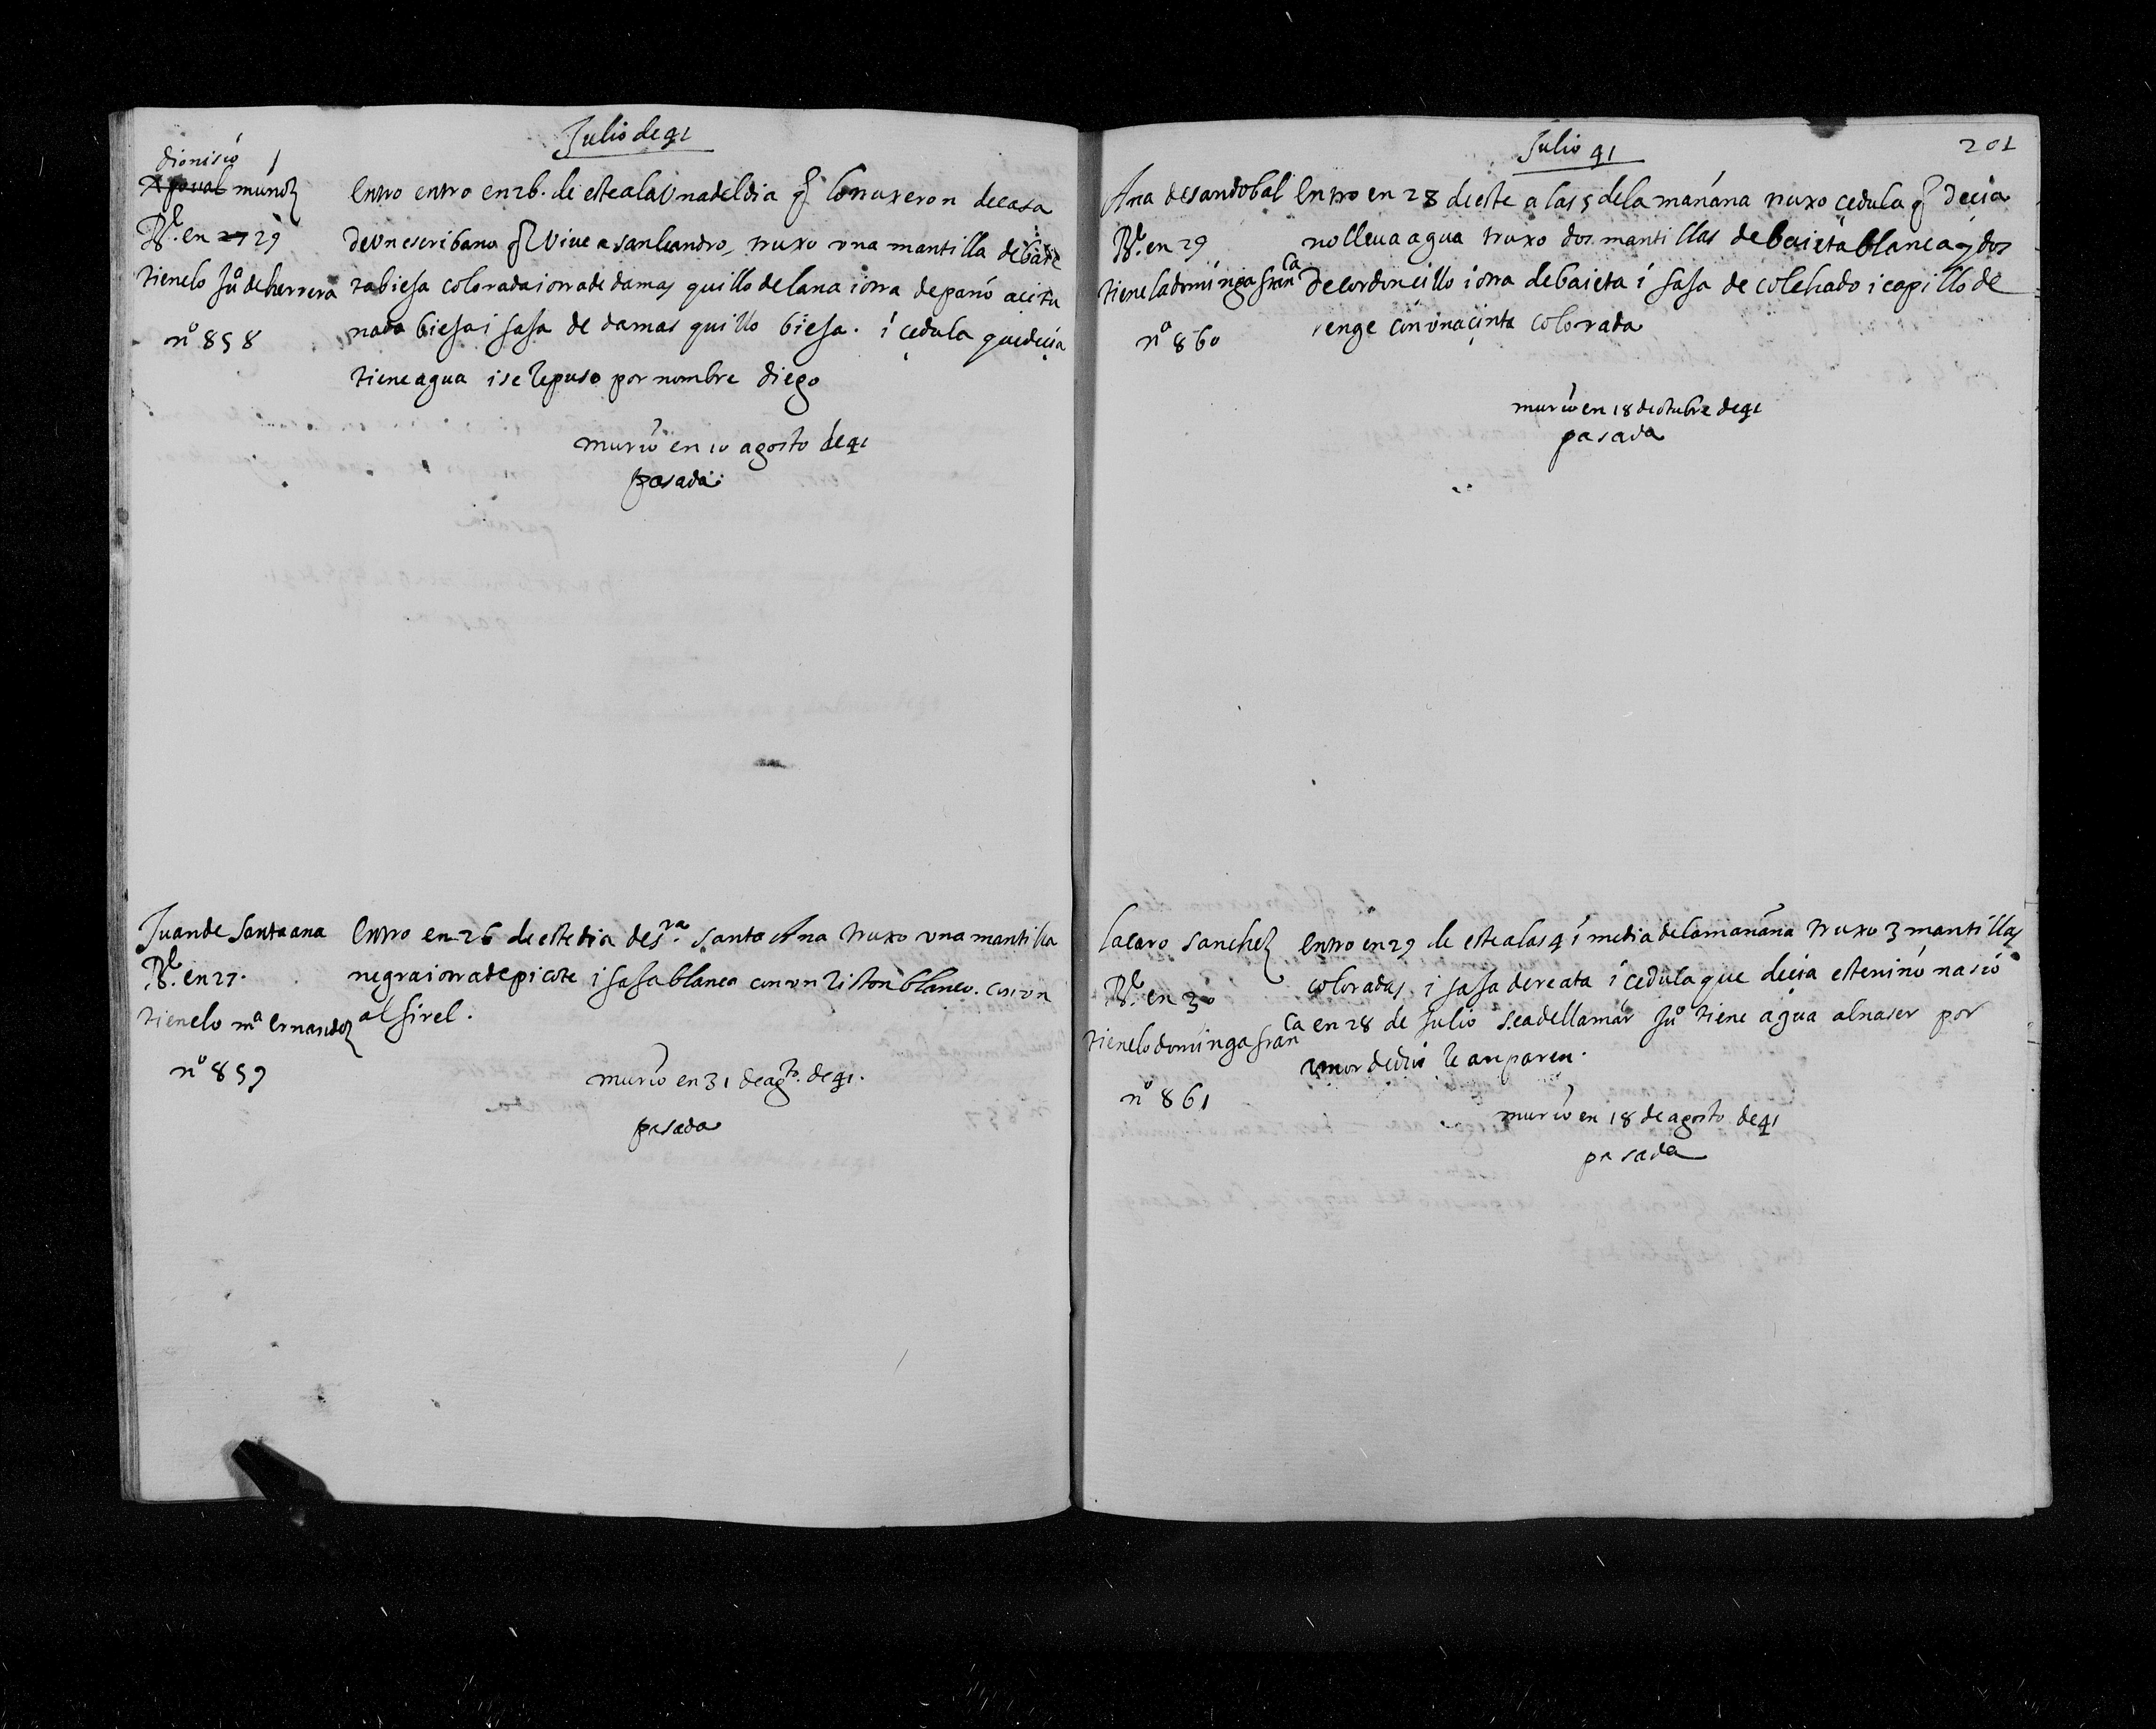 Julio de 91
dionisio
munoz
Bdo. en 27 29
tienelo Juº de herrera
nº 858
Entro entro en 26. de este a la Una del dia q lo truxeron de casa
de Un escribano q Vive a san leandro, truxo una mantilla de baie
ta biefa colorada i otra de damas quillo de lana i otra de pano aceitu
nado biefa i fafa de damas quillo biefa. i cedula que decia
tiene agua i se le puso por nombre diego
murio en 10 agosto de 91
pasada
Juan de Santa ana
Bdo. en 27.
tienelo mª ernandez
nº 859
Entro en 26 de este dia de sra. santa Ana truxo una mantilla
negra i otra de picote i fafa blanca con un liston blanco. con un
alfirel.
murio en 31 de agto. de 91.
pasada
Julio 91
201
Ana de sandobal
Bdo. en 29
tienela dominga franca
nº 860
Entro en 28 de este a las 5 de la manana truxo cedula q decia
no lleua agua truxo dos mantillas de baieta blanca y dos
de cordoncillo i otra de baieta i fafa de colchado i capillo de
renge con una cinta colorada
murio en 18 de otubre de 91
pasada
lacaro sanchez
Bdo. en 30
tienelo dominga franca
nº 861
entro en 29 de este a las 4 i media de la manana truxo 3 mantillas
coloradas, i fafa de reata i cedula que decia este nino nasio
en 28 de Julio sea de llamar Juº tiene agua al naser por
amor de dios le anparen.
murio en 18 de agosto de 91
pasada